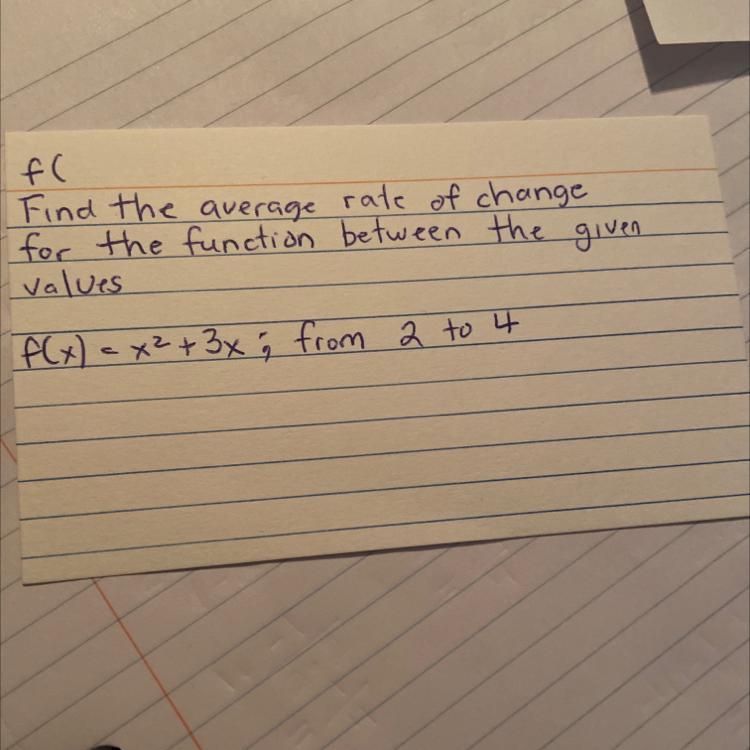 f(
Find the average rate of change
for the function between the given
values
f(x) = x² + 3x ; from 2 to 4